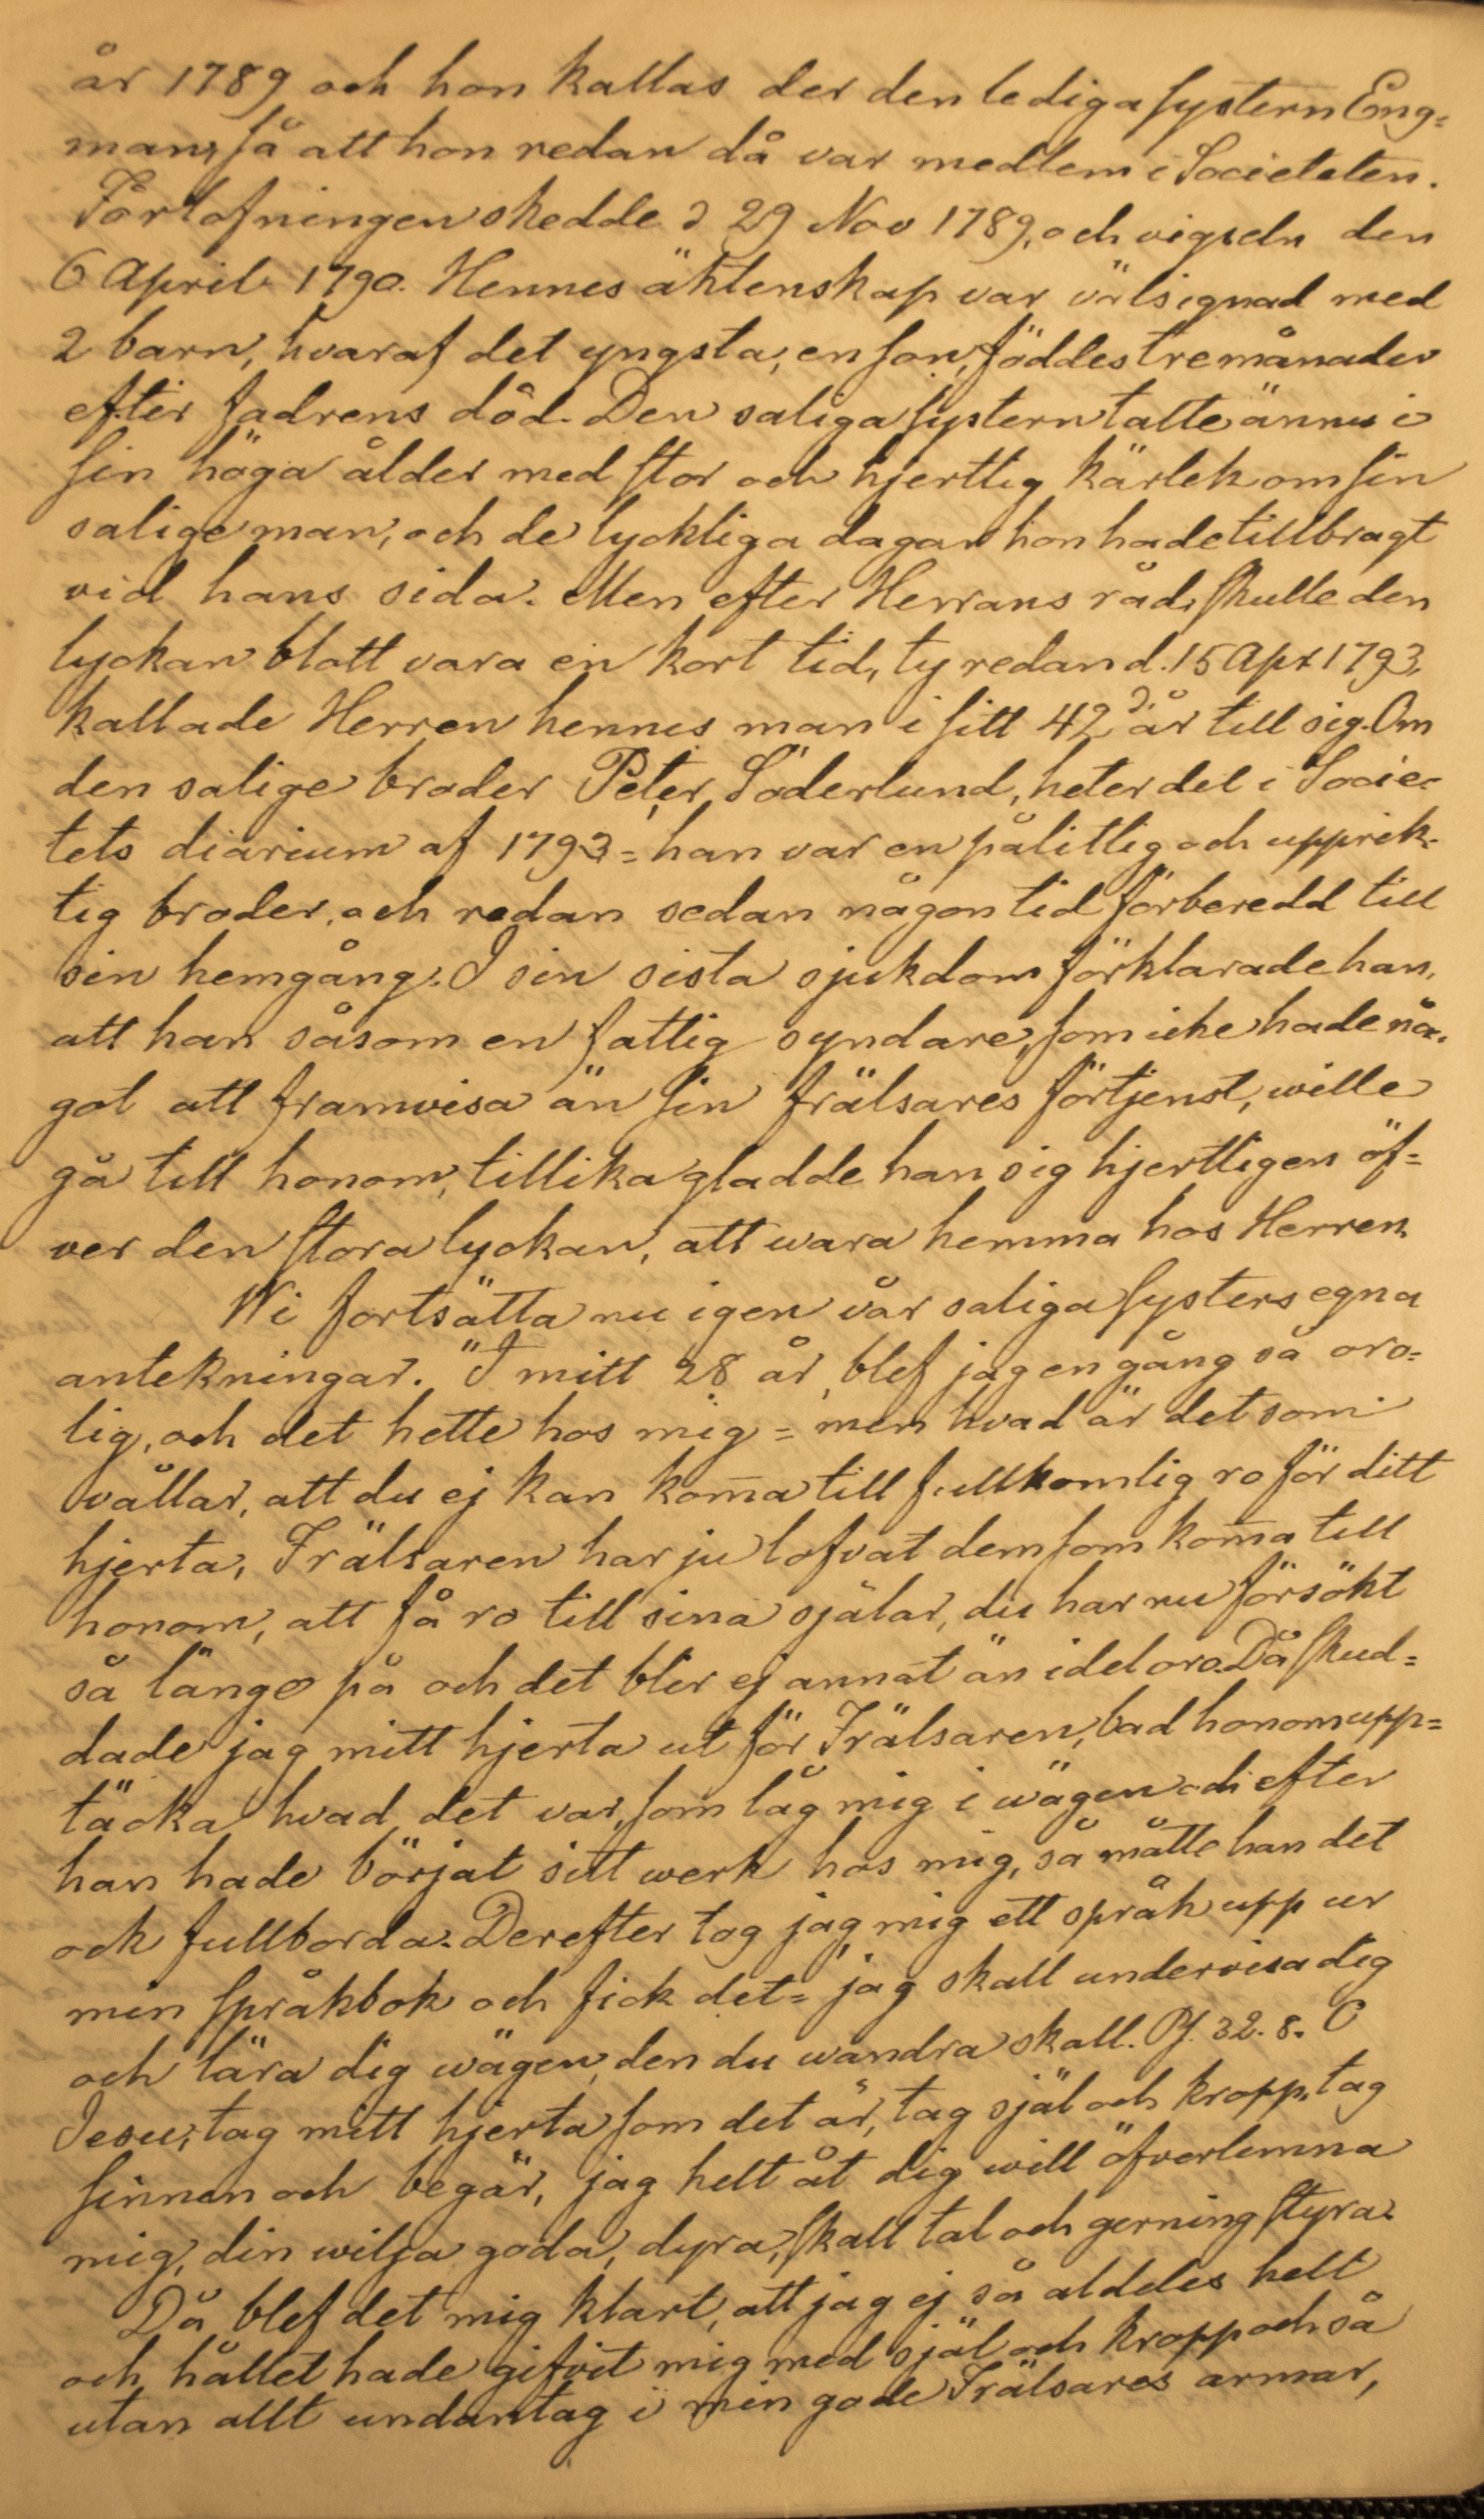 år 1789 och hon kallas der den lediga systern Eng=
man, så att hon redan då var medlem i Societeten.
Förlofningen skedde d 29 Nov 1789, och vigseln den
6 April 1790. Hennes äktenskap var välsignad med
2 barn, hvaraf det yngsta, en son, föddes tre månader
efter fadrens död. Den saliga systern talte ännu i
sin höga ålder med stor och hjertlig kärlek om sin
salige man, och de lyckliga dagar hon hade tillbragt
vid hans sida. Men efter Herrans råd, skulle den
lyckan blott vara en kort tid, ty redan d. 15 Apr 1793,
kallade Herren hennes man i sitt 42 d. år till sig. Om
den salige broder Peter Söderlund, heter det i Socie=
tets diarium af 1793 = han var en pålitlig och upprik=
tig broder, och redan sedan någon tid förberedd till
sin hemgång. I sin sista sjukdom förklarade han,
att han såsom en fattig syndare, som icke hade nå=
got att framvisa än sin frälsares förtjenst, wille
gå till honom, tillika gladde han sig hjertligen öf=
ver den stora lyckan, att wara hemma hos Herren.
Wi fortsätta nu igen vår saliga systers egna
antekningar. "I mitt 28 år, blef jag en gång så oro=
lig, och det hette hos mig = men hvad är det som
vållar, att du ej kan kom̄a till fullkomlig ro för ditt
hjerta, Frälsaren har ju lofvat dem som kom̄a till
honom, att få ro till sina själar, du har nu försökt
så länge på och det blir ej annat än idel oro. Då skud=
dade jag mitt hjerta ut för Frälsaren, bad honom upp=
täcka hvad det var, som låg mig i wägen och efter
han hade börjat sitt werk hos mig, så måtte han det
ock fullborda. Derefter tog jag mig ett språk upp ur
min språkbok och fick det = jag skall undervisa dig
och lära dig wägen, den du wandra skall. Ps. 32. 8. O
Jesu, tag mitt hjerta som det är, tag själ och kropp, tag
sinnen och begär, jag helt åt dig will öfverlemna
mig, din wilja goda, dyra, skall tal och gerning styra.
Då blef det mig klart, att jag ej så aldeles helt
och hållet hade gifvit mig med själ och kropp och så
utan allt undantag i min gode Frälsares armar,